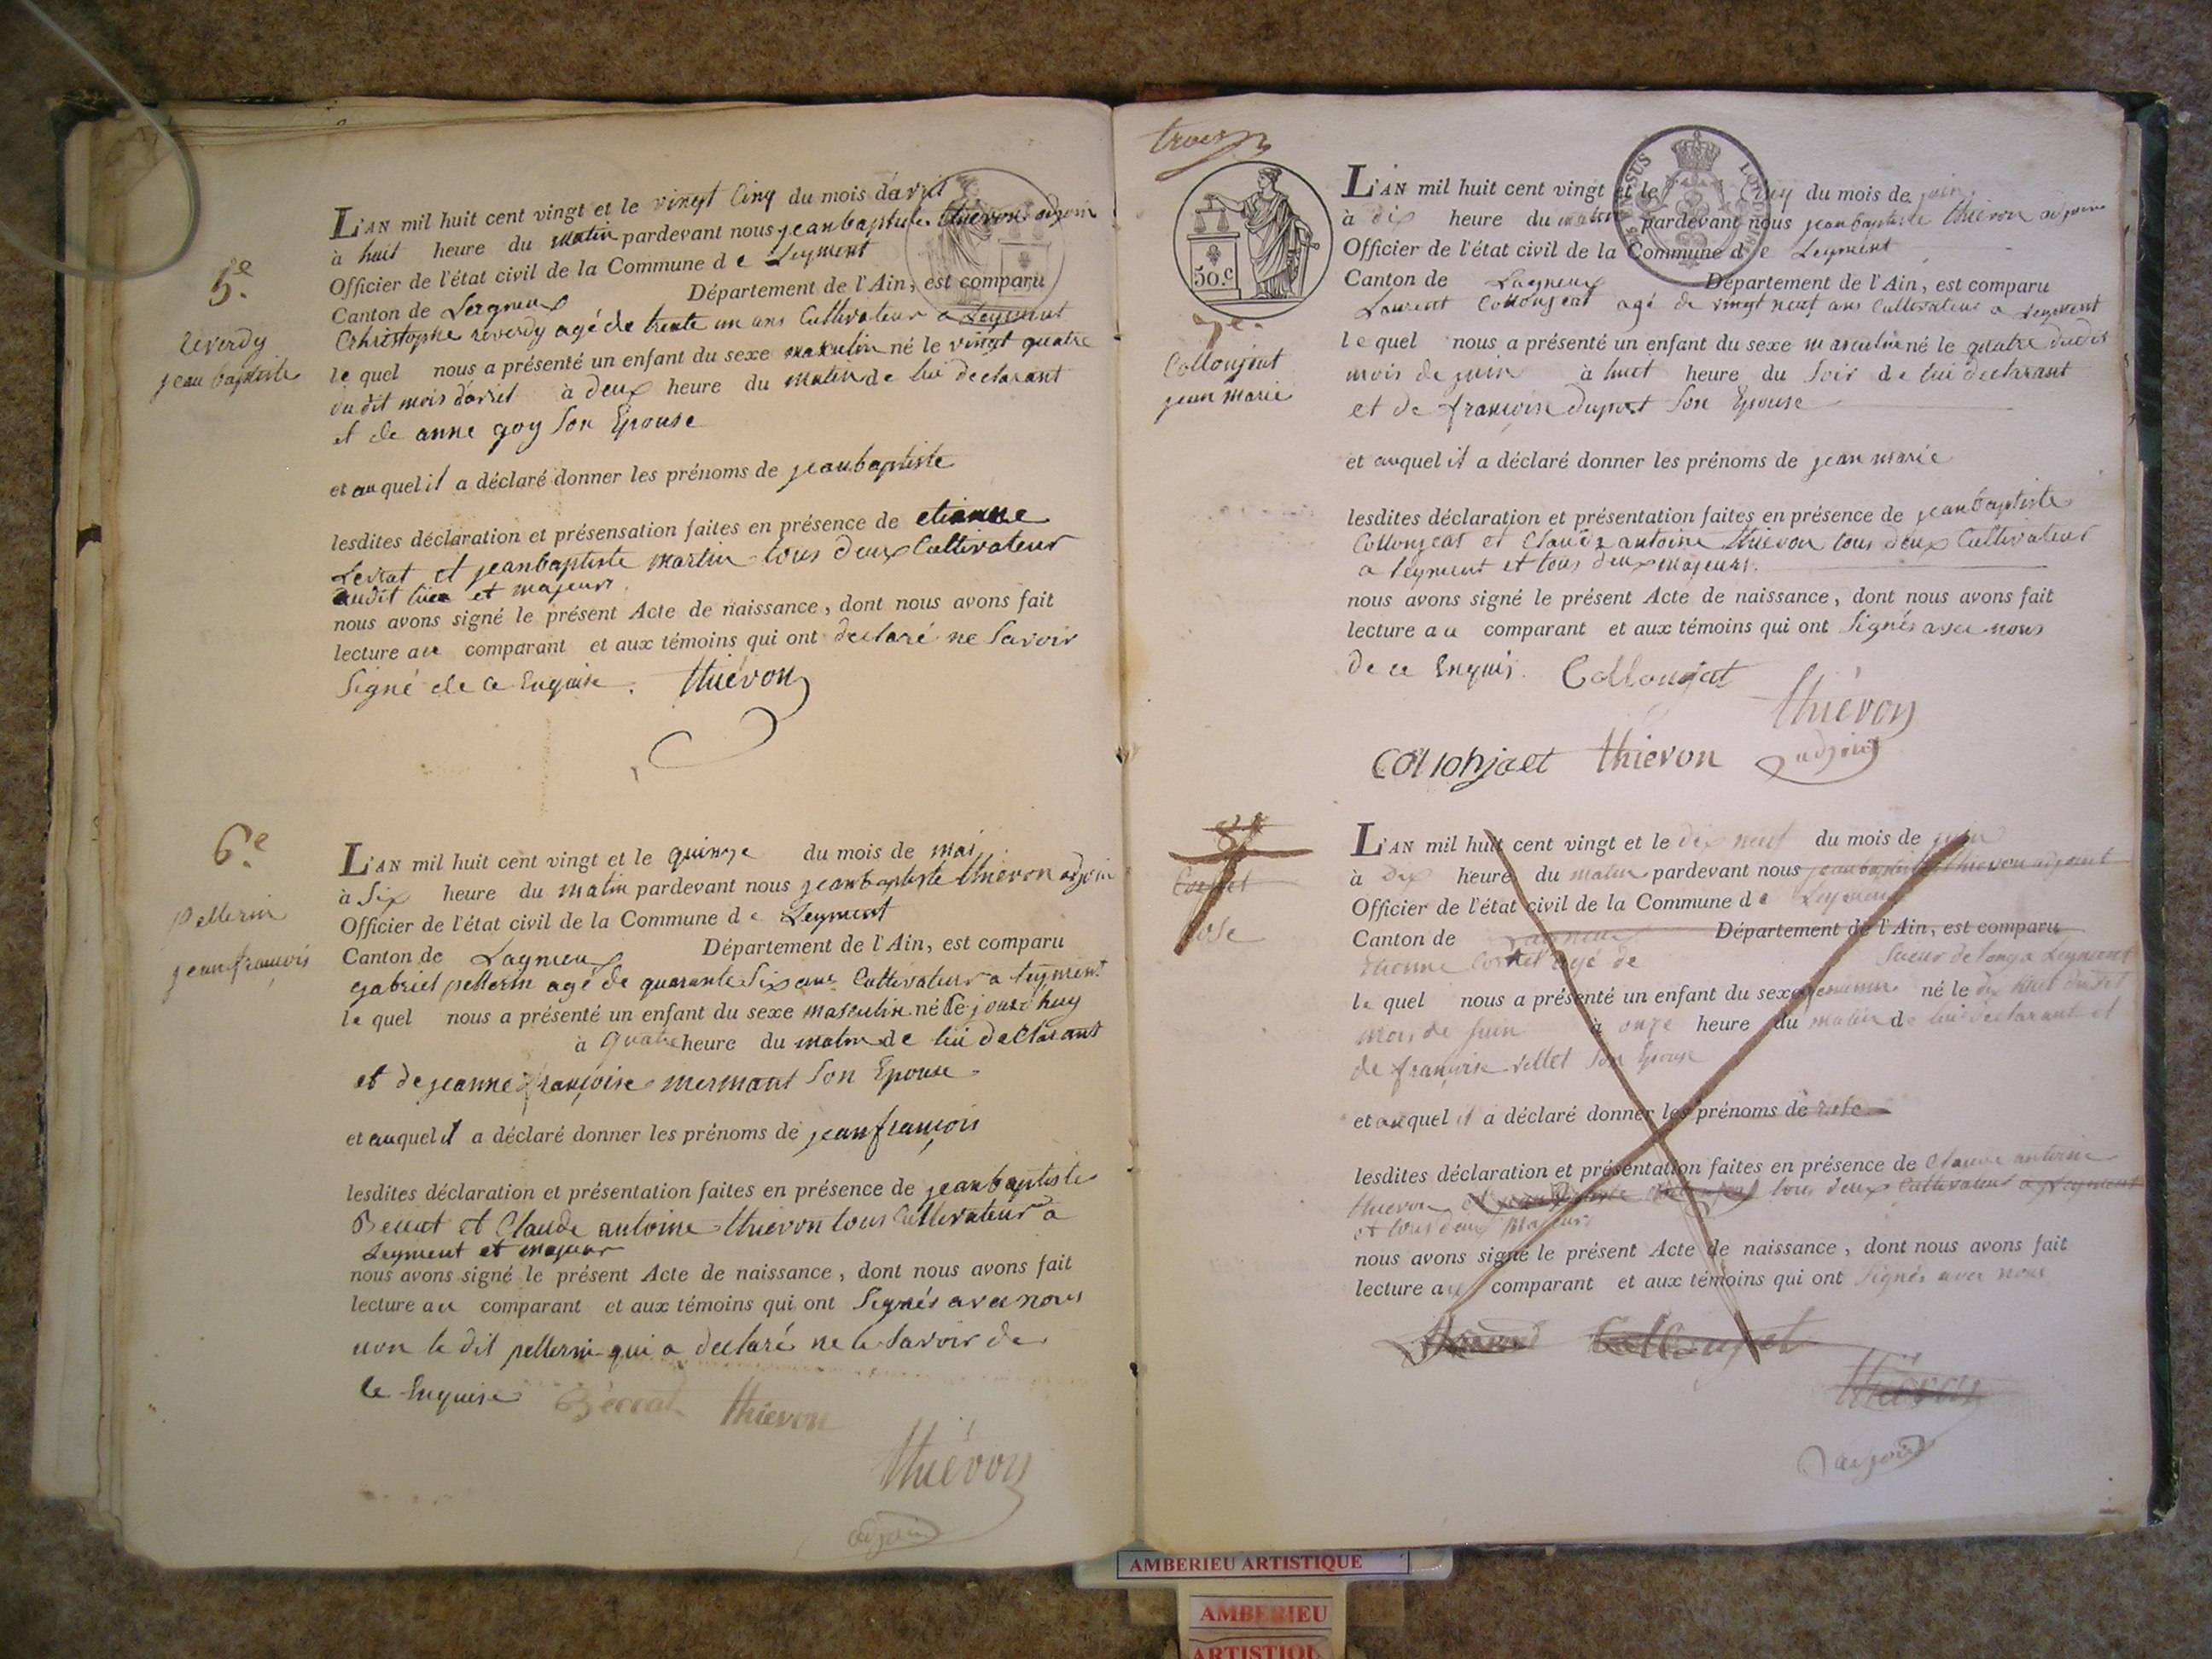 5.e
reverdy
jean baptiste
L'AN mil huit cent vingt et le vingt cinq du mois d'avril
à huit heure du matin pardevant nous jeanbaptiste thiévon adjoin
Officier de l'état civil de la Commune de Leyment
Canton de Lagnieu Département de l'Ain, est comparu
Christophe reverdy agé de trente un ans Cultivateur a Leyment
lequel nous a présenté un enfant du sexe masculin né le vingt quatre
du dit mois d'avril à deux heure du matin de lui declarant
et de anne goy son Epouse
et auquel il a déclaré donner les prénoms de jeanbaptiste
lesdites déclaration et présensation faites en présence de etienne
Levrat et jeanbaptiste martin tous deux Cultivateur
audit lieu et majeurs
nous avons signé le présent Acte de naissance, dont nous avons fait
lecture au comparant et aux témoins qui ont declaré ne Savoir
Signé de ce Enquise. thiévon
6.e
Pellerin
jean françois
L'AN mil huit cent vingt et le quinze du mois de mai
à Six heure du matin pardevant nous jeanbaptiste thievon adjoin
Officier de l'état civil de la Commune de Leyment
Canton de Lagnieu Département de l'Ain, est comparu
gabriel pellerin agé de quarante Six ans Cultivateur a leyment
lequel nous a présenté un enfant du sexe masculin né le jourd'huy
à quatre heure du matin de lui declarant
et de jeanne françoise mermant son Epouse
et auquel il a déclaré donner les prénoms de jean françois
lesdites déclaration et présentation faites en présence de jeanbaptiste
Beccat et Claude antoine thievon tous Cultivateur à
Leyment et majeur
nous avons signé le présent Acte de naissance, dont nous avons fait
lecture au comparant et aux témoins qui ont Signés avec nous
non le dit pellerin qui a declaré ne le Savoir de
ce Enquise Beccat thievon
thiévon
adjoin
trois
50.c
7.e
Collonjeat
jean marie
L'AN mil huit cent vingt et le Cinq du mois de juin
à dix heure du matin pardevant nous jeanbaptiste thievon adjoin
Officier de l'état civil de la Commune de Leyment
Canton de Lagnieu Département de l'Ain, est comparu
Laurent Collonjeat agé de vingt neuf ans Cultivateur a Leyment
lequel nous a présenté un enfant du sexe masculin né le quatre dudit
mois de juin à huit heure du Soir de lui declarant
et de françoise dupont Son Epouse
et auquel il a déclaré donner les prénoms de jean marie
lesdites déclaration et présentation faites en présence de jeanbaptiste
Collonjeat et Claude antoine thievon tous deux Cultivateur
a leyment et tous deux majeurs.
nous avons signé le présent Acte de naissance, dont nous avons fait
lecture au comparant et aux témoins qui ont Signés avec nous
de ce Enquis. Collonjat
thiévon
Collonjaet thievon adjoint
8.e
Cornet
rose
L'AN mil huit cent vingt et le dix neuf du mois de juin
à dix heure du matin pardevant nous jeanbaptiste thievon adjoint
Officier de l'état civil de la Commune de Leyment
Canton de Lagnieu Département de l'Ain, est comparu
Etienne Cornet agé de Sieur de long a Leyment
lequel nous a présenté un enfant du sexe feminin né le dix huit dudit
mois de juin à onze heure du matin de lui declarant et
de françoise vellet Son Epouse
et auquel il a déclaré donner les prénoms de rose
lesdites déclaration et présentation faites en présence de Claude antoine
thievon et jeanbaptiste Collonjeat tous deux Cultivateur a Leyment
et tous deux majeurs
nous avons signé le présent Acte de naissance, dont nous avons fait
lecture au comparant et aux témoins qui ont Signés avec nous
Collonjat
thiévon
adjoint
AMBERIEU ARTISTIQUE
AMBERIEU
ARTISTIQU